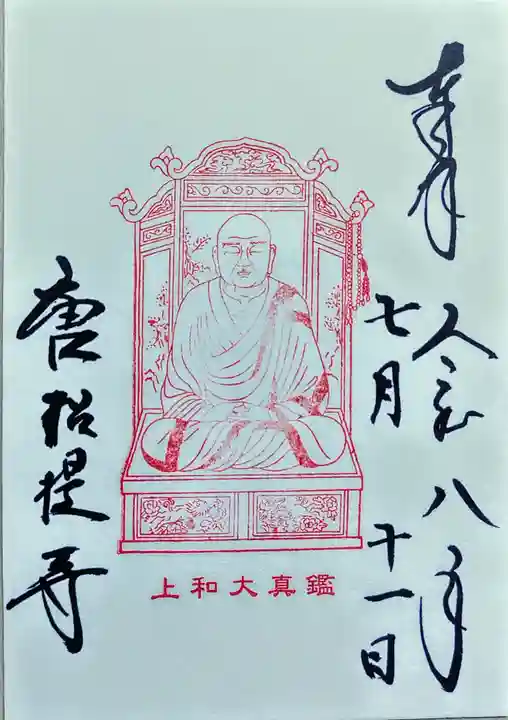 奉拝
令和八年
七月十一日
鑑真大和上
唐招提寺